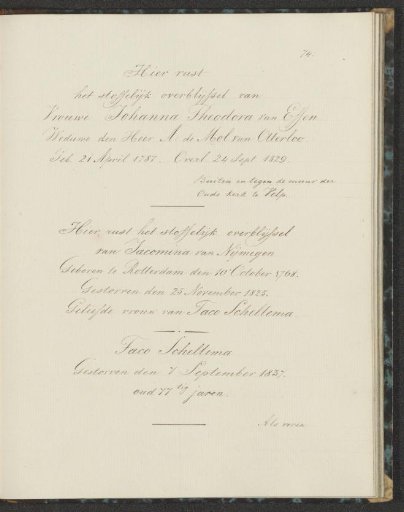 74.
Hier rust
het stoffelijk overblijfsel van
Vrouwe Johanna Theodora van Essen
Weduwe den Heer A. de Mol van Otterloo
Geb. 21 April 1787. Overl. 24 Sept. 1829.
Buiten in tegen de muur der
Oude kerk te Velp.
Hier rust het stoffelijk overblijfsel
van Jacomina van Nijmegen
Geboren te Rotterdam den 10 October 1768.
Gestorven den 25 November 1825.
Geliefde vrouw van Taco Scheltema
Taco Scheltema
Gestorven den 7 September 1837.
oud 77tig jaren.
Als voren